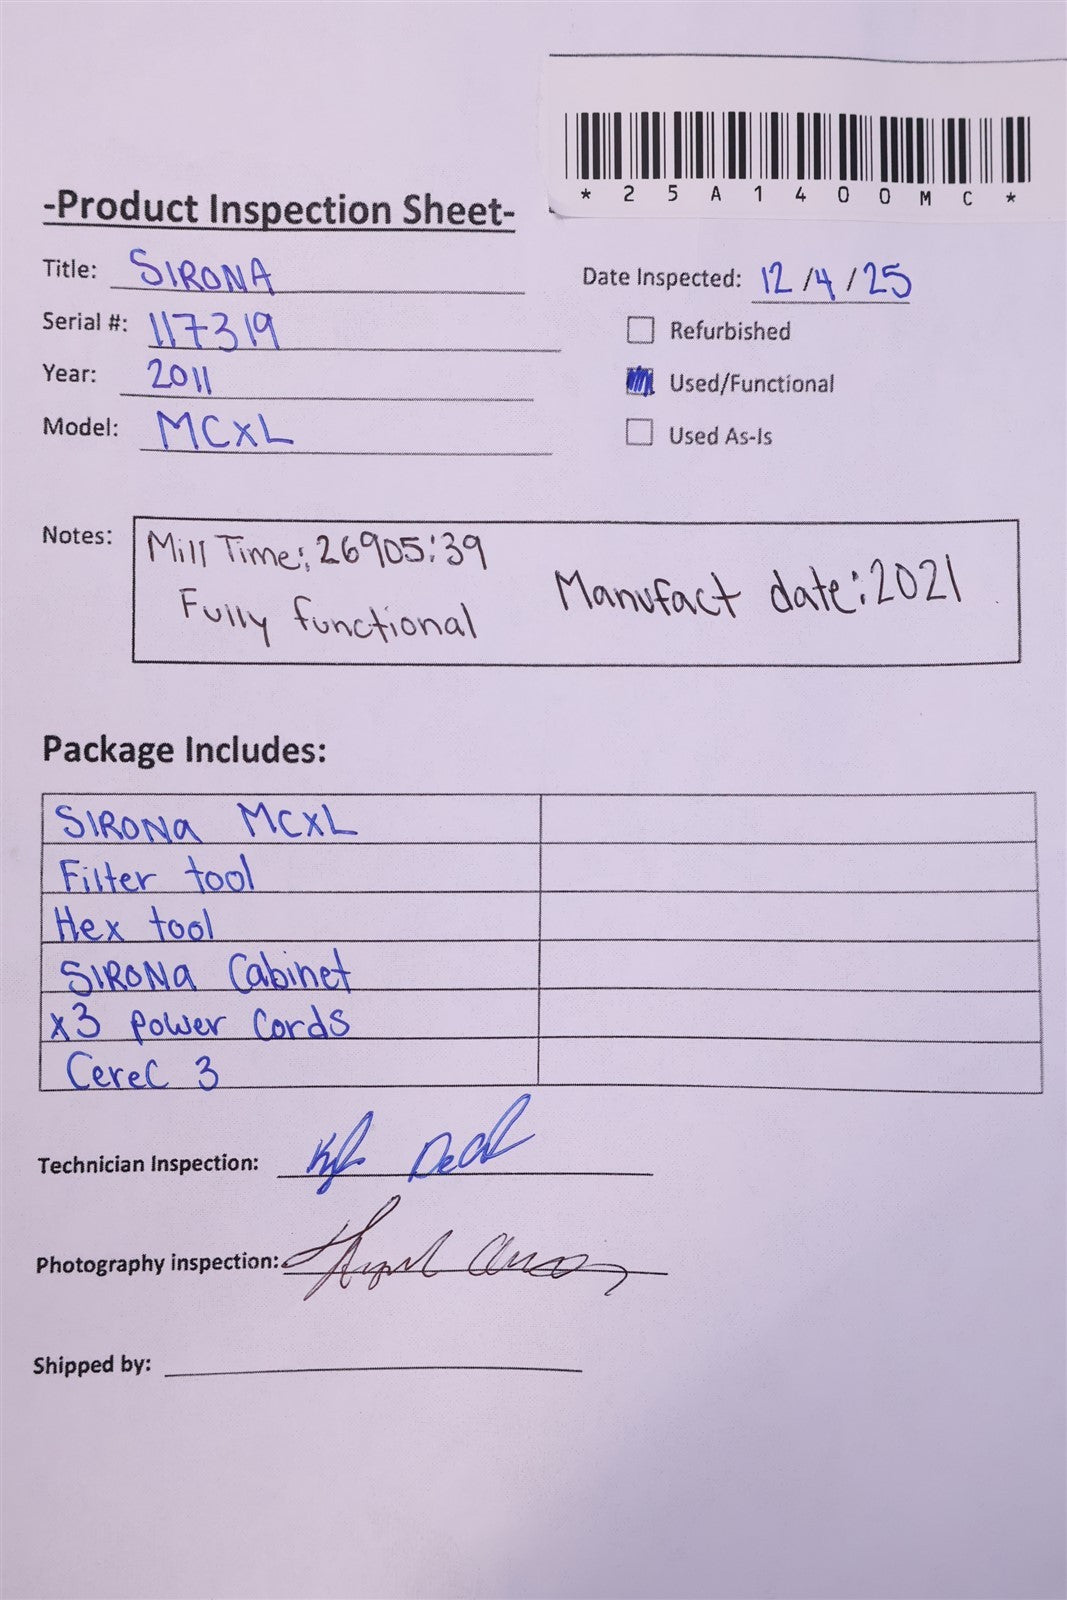 *25A1400MC*
-Product Inspection Sheet-
Title: SIRONA
Date Inspected: 12/4/25
Serial #: 117319
Refurbished
Year: 2011
Used/Functional
Model: MCXL
Used As-Is
Notes: Mill Time: 26905:39
Fully functional
Manufact date: 2021
Package Includes:
SIRONA MCXL
Filter tool
Hex tool
SIRONA Cabinet
x3 power cords
Cerec 3
Technician Inspection:
Photography inspection:
Shipped by: